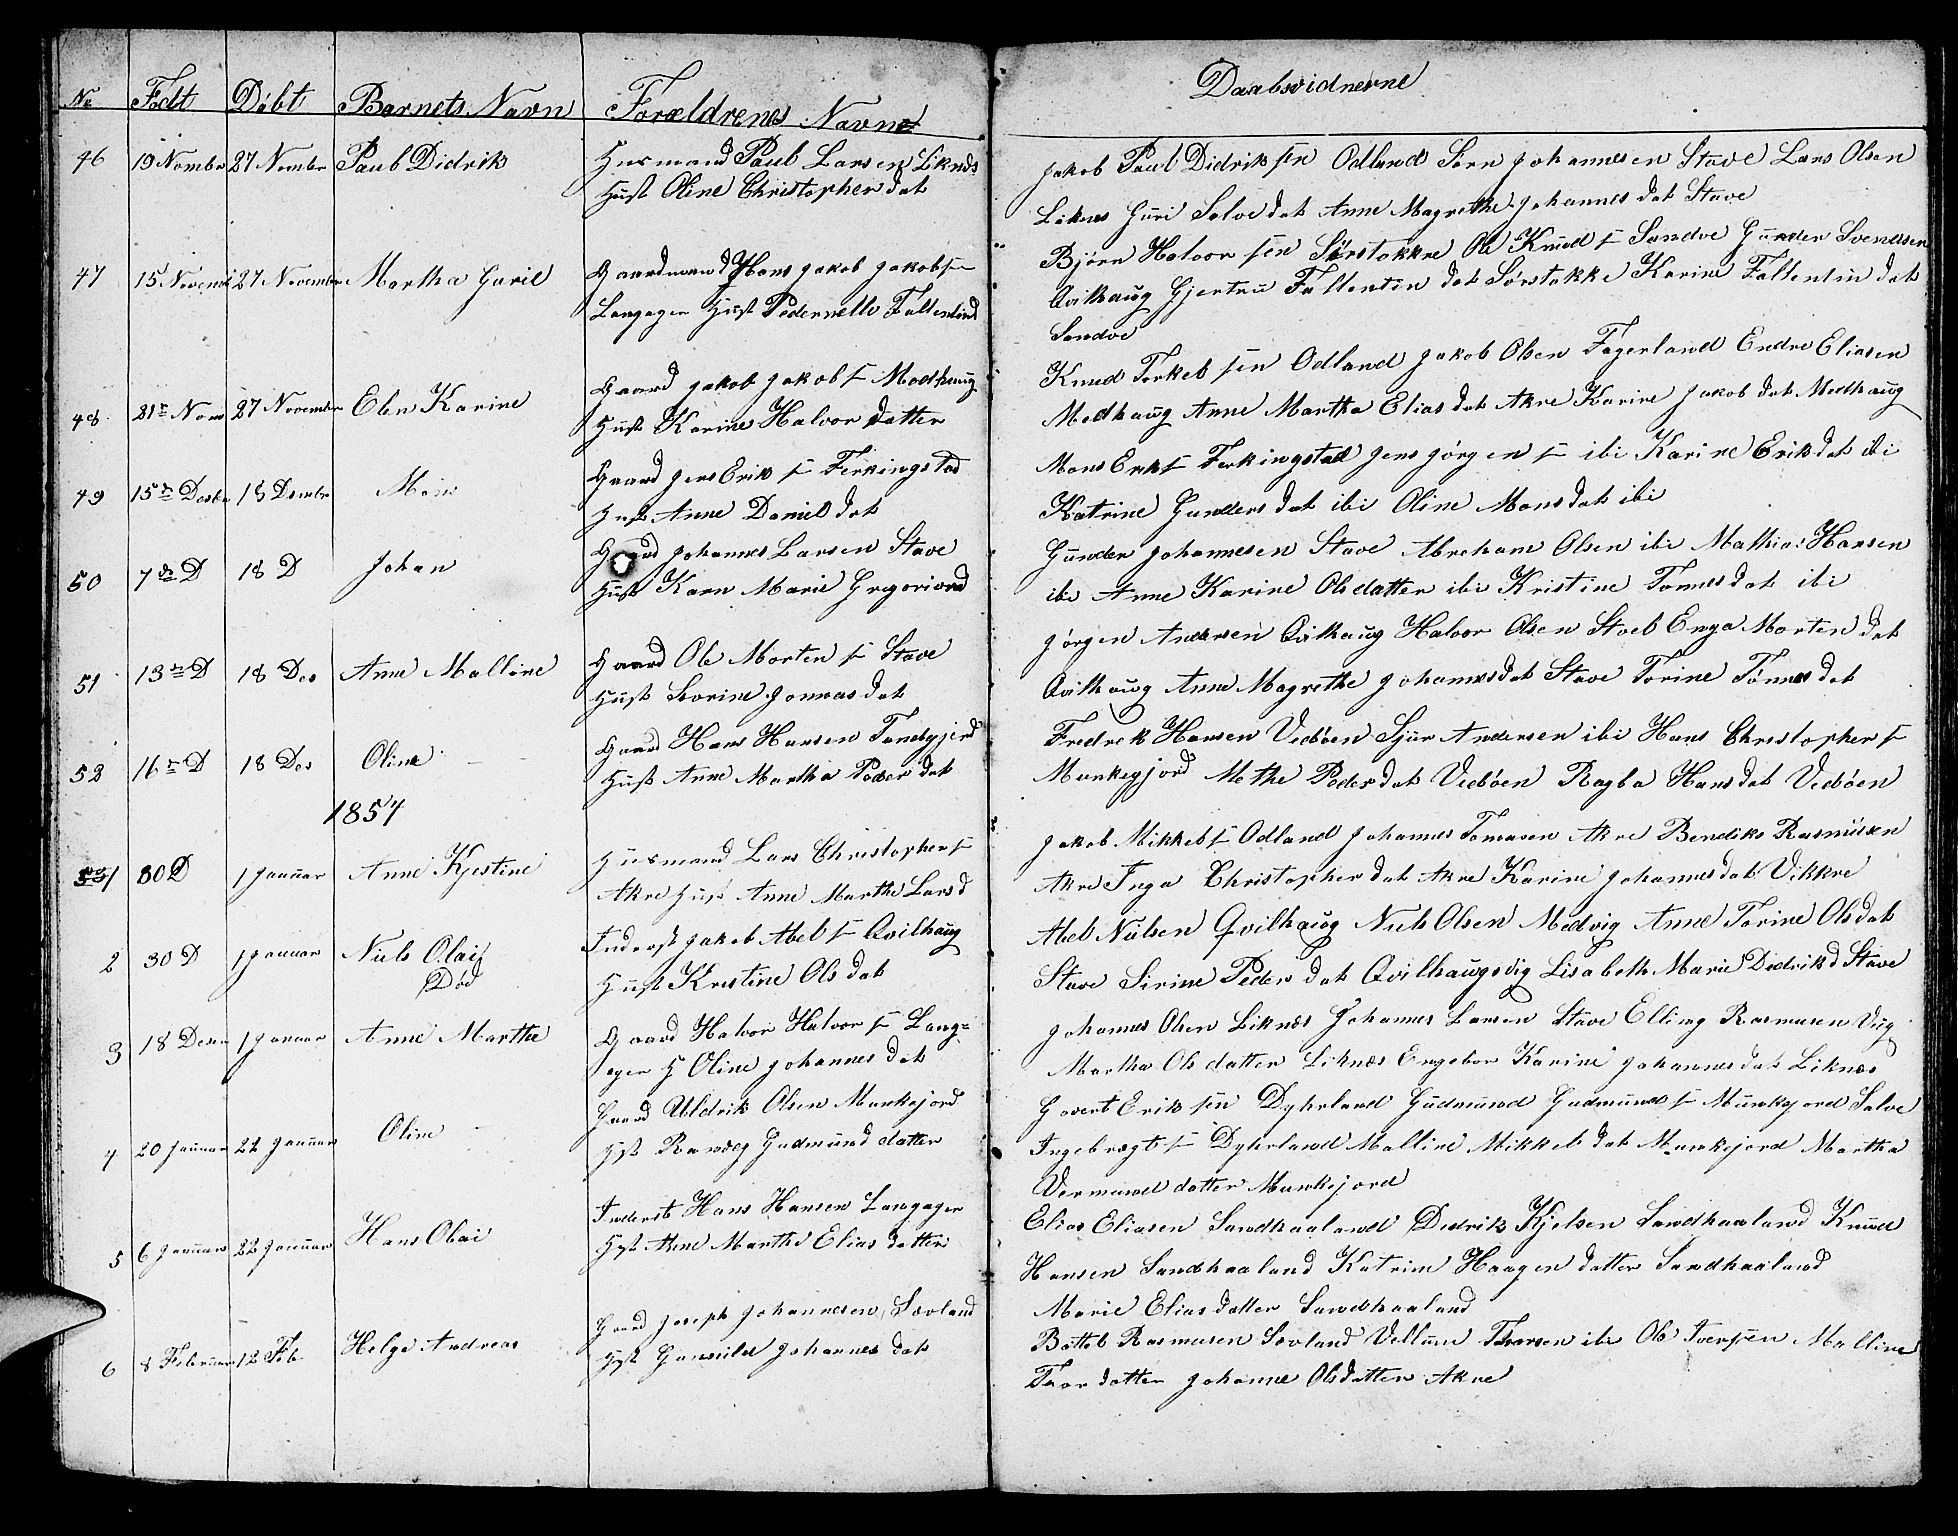 No Födt Döbt Barnets Navn Forældrenes Navne
46 19 Nombr 27 Nombr Paul Didrik Husmand Paul Larsen Liknes
Hust Oline Christopher dat
47 15 Novemb 27 November Martha Guril Gaardmand Hans Jakob Jakobsen
Langager Hust Pedernelle Fallentind
48 21 Nom 27 November Elen Karine Gaard Jakob Jakob s Medhaug
Hust Karine Halvor datter
49 15 Desbr 18 Dsmbr Gaard Jens Erik s Ferkingstad
Hust Anne Daniel dat
50 7de D 18 D Johan Gaard Johannes Larsen Stave
Hust Karn Marie Gregoriusd
51 13 D 18 Des Anne Malline Gaard Ole Morten s Stave
Hust Sorine Jonnas dat
52 16 D 18 Des Oline Gaard Hans Hansen
Hust Anne Martha Peder dat
1854
1 30 D 1 Januar Anne Kjestine Husmand Lars Christopher s
Akre Hust Anne Marthe Lars d
2 30 D 1 Januar Niels Olai Inderst Jakob Abel s Qvilhaug
Død Hust Kristine Ols dat
3 18 Desm 1 Januar Anne Martha Gaard Halvor Halvor s Lang=
ager H Oline Johannes dat
4 20 Januar 22 Januar Oline Gaard Uldrik Olsen Munkejord
Hst Gudmund datter
5 6 Januar 22 Januar Hans Olai Inderst Hans Hansen Langager
Hst Ane Marthe Elias datter
6 8 Februar 12 Feb Helge Andreas Gaard Joseph Johannesen Sævland
Hst Gunnild Johannes dat
Daabsvidnerne
Jakob Paul Didrik sen Odland Sørn Johannesen Stave Lars Olsen
Liknes Guri Salve dat Anne Magrethe Johannes dat Stave
Bjørn Halvor sen Sørstokke Ole Knud s Sandve Gunder Svendsen
Qvilhaug Gjertru Fallentin dat Sørstokke Karine Fallentin dat
Sandve
Knud Torkel sen Odland Jakob Olsen Fagerland Endre Eliasen
Medhaug Anne Martha Elias dat Akre Karine Jakob dat Medhaug
Mons Erik s Ferkingstad Jens Jørgen s ibi Karine Erik dat ibi
Katrine Gunders dat ibi Oline Mons dat ibi
Gunder Johannesen Stave Abraham Olsen ibi Mathias Hansen
ibi Anne Karine Olsdatter ibi Kristine Tønnes dat ibi
Jørgen Andersen Qvilhaug Halvor Olsen Stoel Enga Morten dat
Qvilhaug Anne Magrethe Johannesdat Stave Torine Tønnes dat
Fredrek Hansen Vedøen Sjur Andersen ibi Hans Christopher s
Munkegjord Methe Peders dat Vedøen Ragla Hans dat Vedøen
Jakob Mikkel s Odland Johannes Tomasen Akre Bendiks Rasmusen
Akre Inga Christopher dat Akre Karine Johannes dat Vikkre
Abel Nilsen Qvilhaug Niels Olsen Medvig Anne Torine Ols dat
Stave Sirine Peder dat Qvilhaugsvig Lisabeth Marie Dedrik d Stave
Johannes Olsen Liknes Johannes Larsen Stave Elling Rasmusen Vig
Martha Ols datter Liknæs Engebor Karine Johannes dat Liknæs
Govert Erik sen Dyhrland Gudmund Gudmund s Munkejord Salve
Ingebregt s Dyhrland Malline Mikkel dat Munkejord Martha
Vermund datter Munkejord
Elias Eliasen Sandhaaland Dedrik Kjelsen Sandhaaland Knud
Hansen Sandhaaland Katrine Haagen datter Sandhaaland
Marie Elias datter Sandhaaland
Bottel Rasmusen Sævland Vellum ibi Ole Iversen Malline
Taar datter Johanne Olsdatter Akre